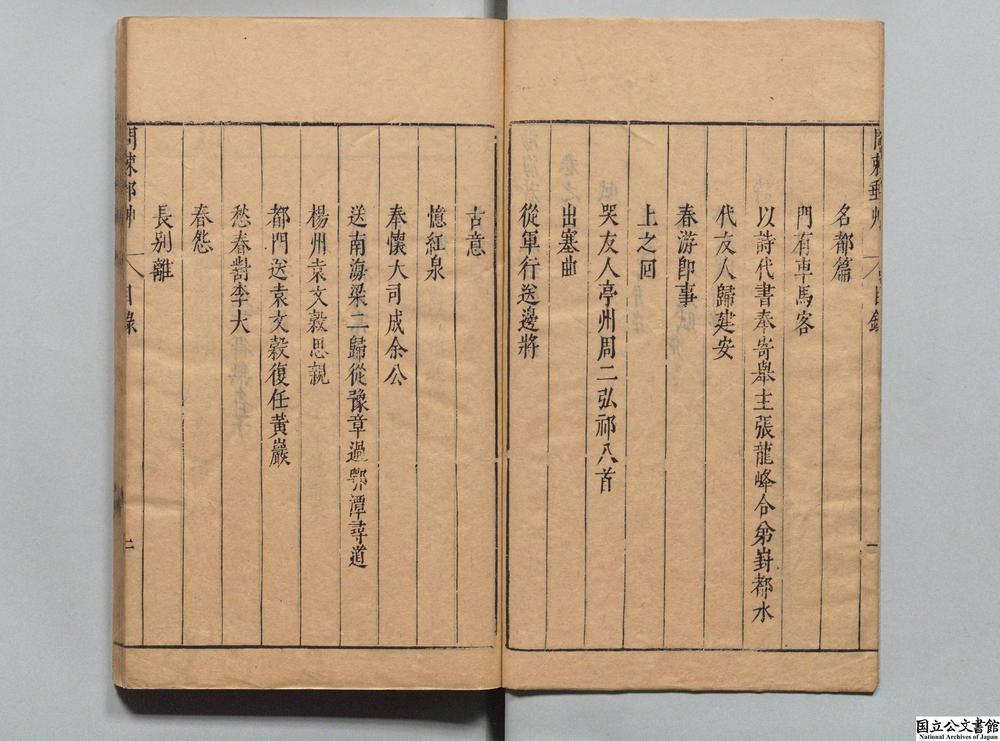 名都篇
門有車馬客
以詩代書奉寄舉主張龍峰合㕘尌都水
代友人歸建安
春游即事
上之回
哭友人亭州周二弘祁八首
出塞曲
從軍行送邊將
古意
憶紅泉
奉懷大司成余公
送南海梁二歸從豫章過鄂潭尋道
楊州袁文榖思親
都門送袁文榖復任黄巖
愁春對李大
春怨
長别離
二
国立公文書館
National Archives of Japan